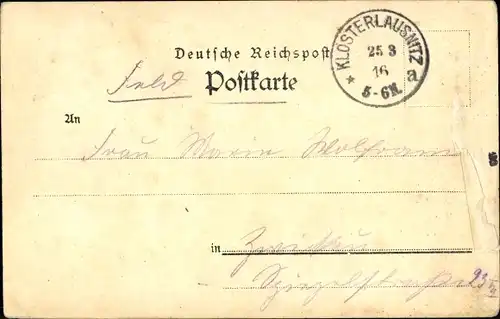 Deutsche Reichspost
KLOSTERLAUSNITZ
25 3
16
* 5-6N. a
Feld Postkarte
An
Frau Marie Wolfram
in Zwickau
Spiegelstraße 23